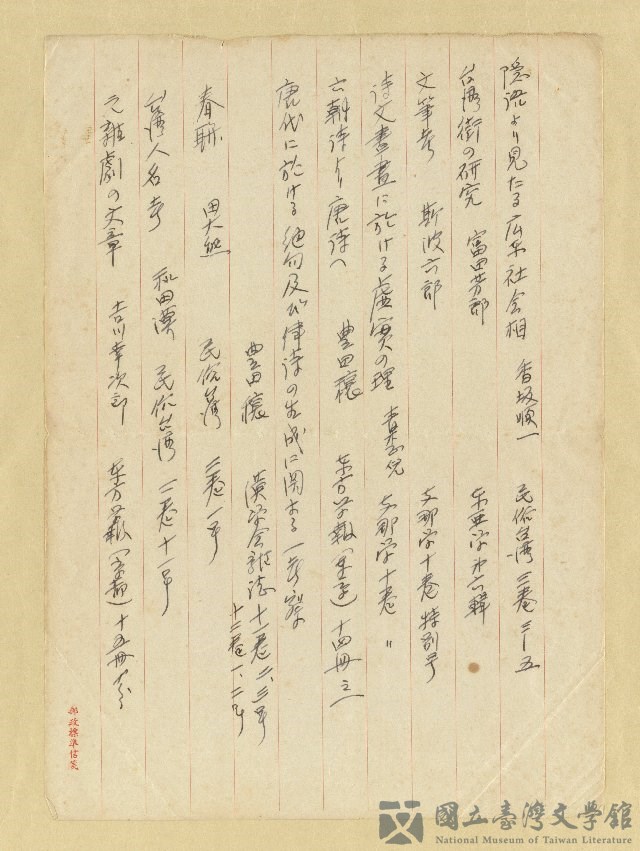 隠語より見たる広東社会相 香坂順一 民俗台湾 三巻三ー五
台湾街の研究 富田芳郎 东亜学 第六輯
文筆考 斯波六郎 支那学十巻 特別号
诗文書画に於ける虚實の理 青木正児 支那学十巻 〃
六朝诗より唐诗へ 豊田穣 东方学報(東京)十四冊之一
唐代に於ける絶句及び律诗の生成に関する一考察
豊田穣 漢学会雑誌 十一巻二、三号
十二巻一、二号
春聯 田大熊 民俗台湾 二巻一号
台湾人名考 和田漠 民俗台湾 二巻十一号
元雜劇の文章 吉川幸次郎 东方学報(京都)十五冊
郵政標準信箋
國立臺灣文學館
National Museum of Taiwan Literature